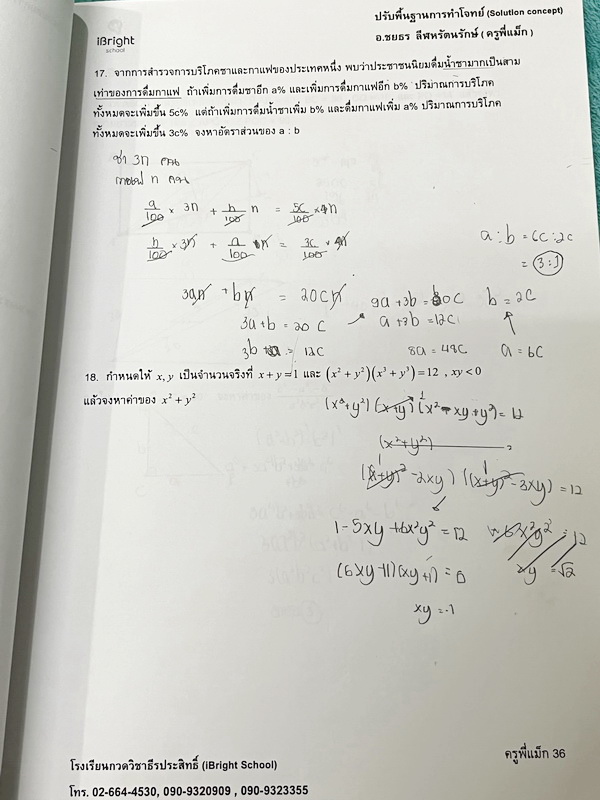 ปรับพื้นฐานการทำโจทย์ (Solution concept)
iBright
school
อ.ชยธร ลีฬหรัตนรักษ์ ( ครูพี่แม็ก )
17. จากการสำรวจการบริโภคชาและกาแฟของประเทศหนึ่ง พบว่าประชาชนนิยมดื่มน้ำชามากเป็นสาม
เท่าของการดื่มกาแฟ ถ้าเพิ่มการดื่มชาอีก a% และเพิ่มการดื่มกาแฟอีก b% ปริมาณการบริโภค
ทั้งหมดจะเพิ่มขึ้น 5c% แต่ถ้าเพิ่มดื่มน้ำชาเพิ่ม b% และดื่มกาแฟเพิ่ม a% ปริมาณการบริโภค
ทั้งหมดจะเพิ่มขึ้น 3c% จงหาอัตราส่วนของ a : b
ชา 3n คน
กาแฟ n คน
a/100 × 3n + b/100 n = 5c/100 × 4n
b/100 × 3n + a/100 n = 3c/100 × 4n
a : b = 6c : 2c
= 3 : 1
3an + bn = 20cn
3a+b = 20 c
3b+a = 12c
9a+3b = 60c
a+3b = 12c
8a = 48c
b = 2c
a = 6c
18. กำหนดให้ x, y เป็นจำนวนจริงที่ x + y = 1 และ (x² + y²)(x³ + y³) = 12 , xy < 0
แล้วจงหาค่าของ x² + y²
(x²+y²) (x+y) (x² - xy + y²) = 12
(x²+y²) =
((x+y)² - 2xy) ((x+y)² - 3xy) = 12
1 - 5xy + 6x²y² = 12
(6xy - 11)(xy + 1) = 0
xy = -1
6x²y² = 12
xy = √2
ครูพี่แม็ก 36
โรงเรียนกวดวิชาธีรประสิทธิ์ (iBright School)
โทร. 02-664-4530, 090-9320909 , 090-9323355